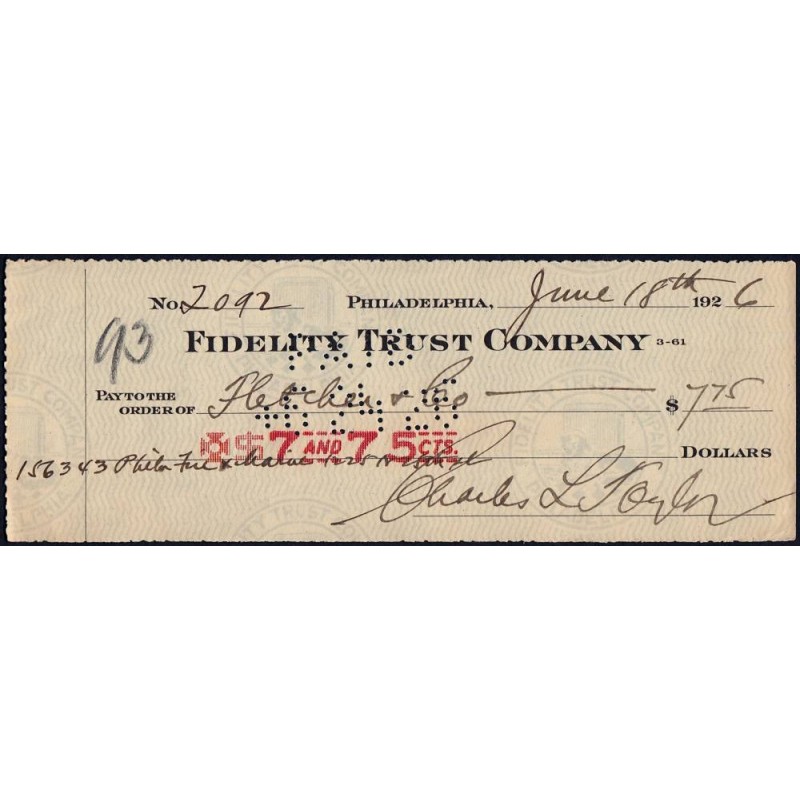 No. 2092 Philadelphia, June 18th 1926
93
Fidelity Trust Company 3-61
PAID
Pay to the order of Fletcher & Co $ 7.75
$7 AND 75 CTS. Dollars
156343 Phila Fire & Marine 1425 N
Charles L. Taylor